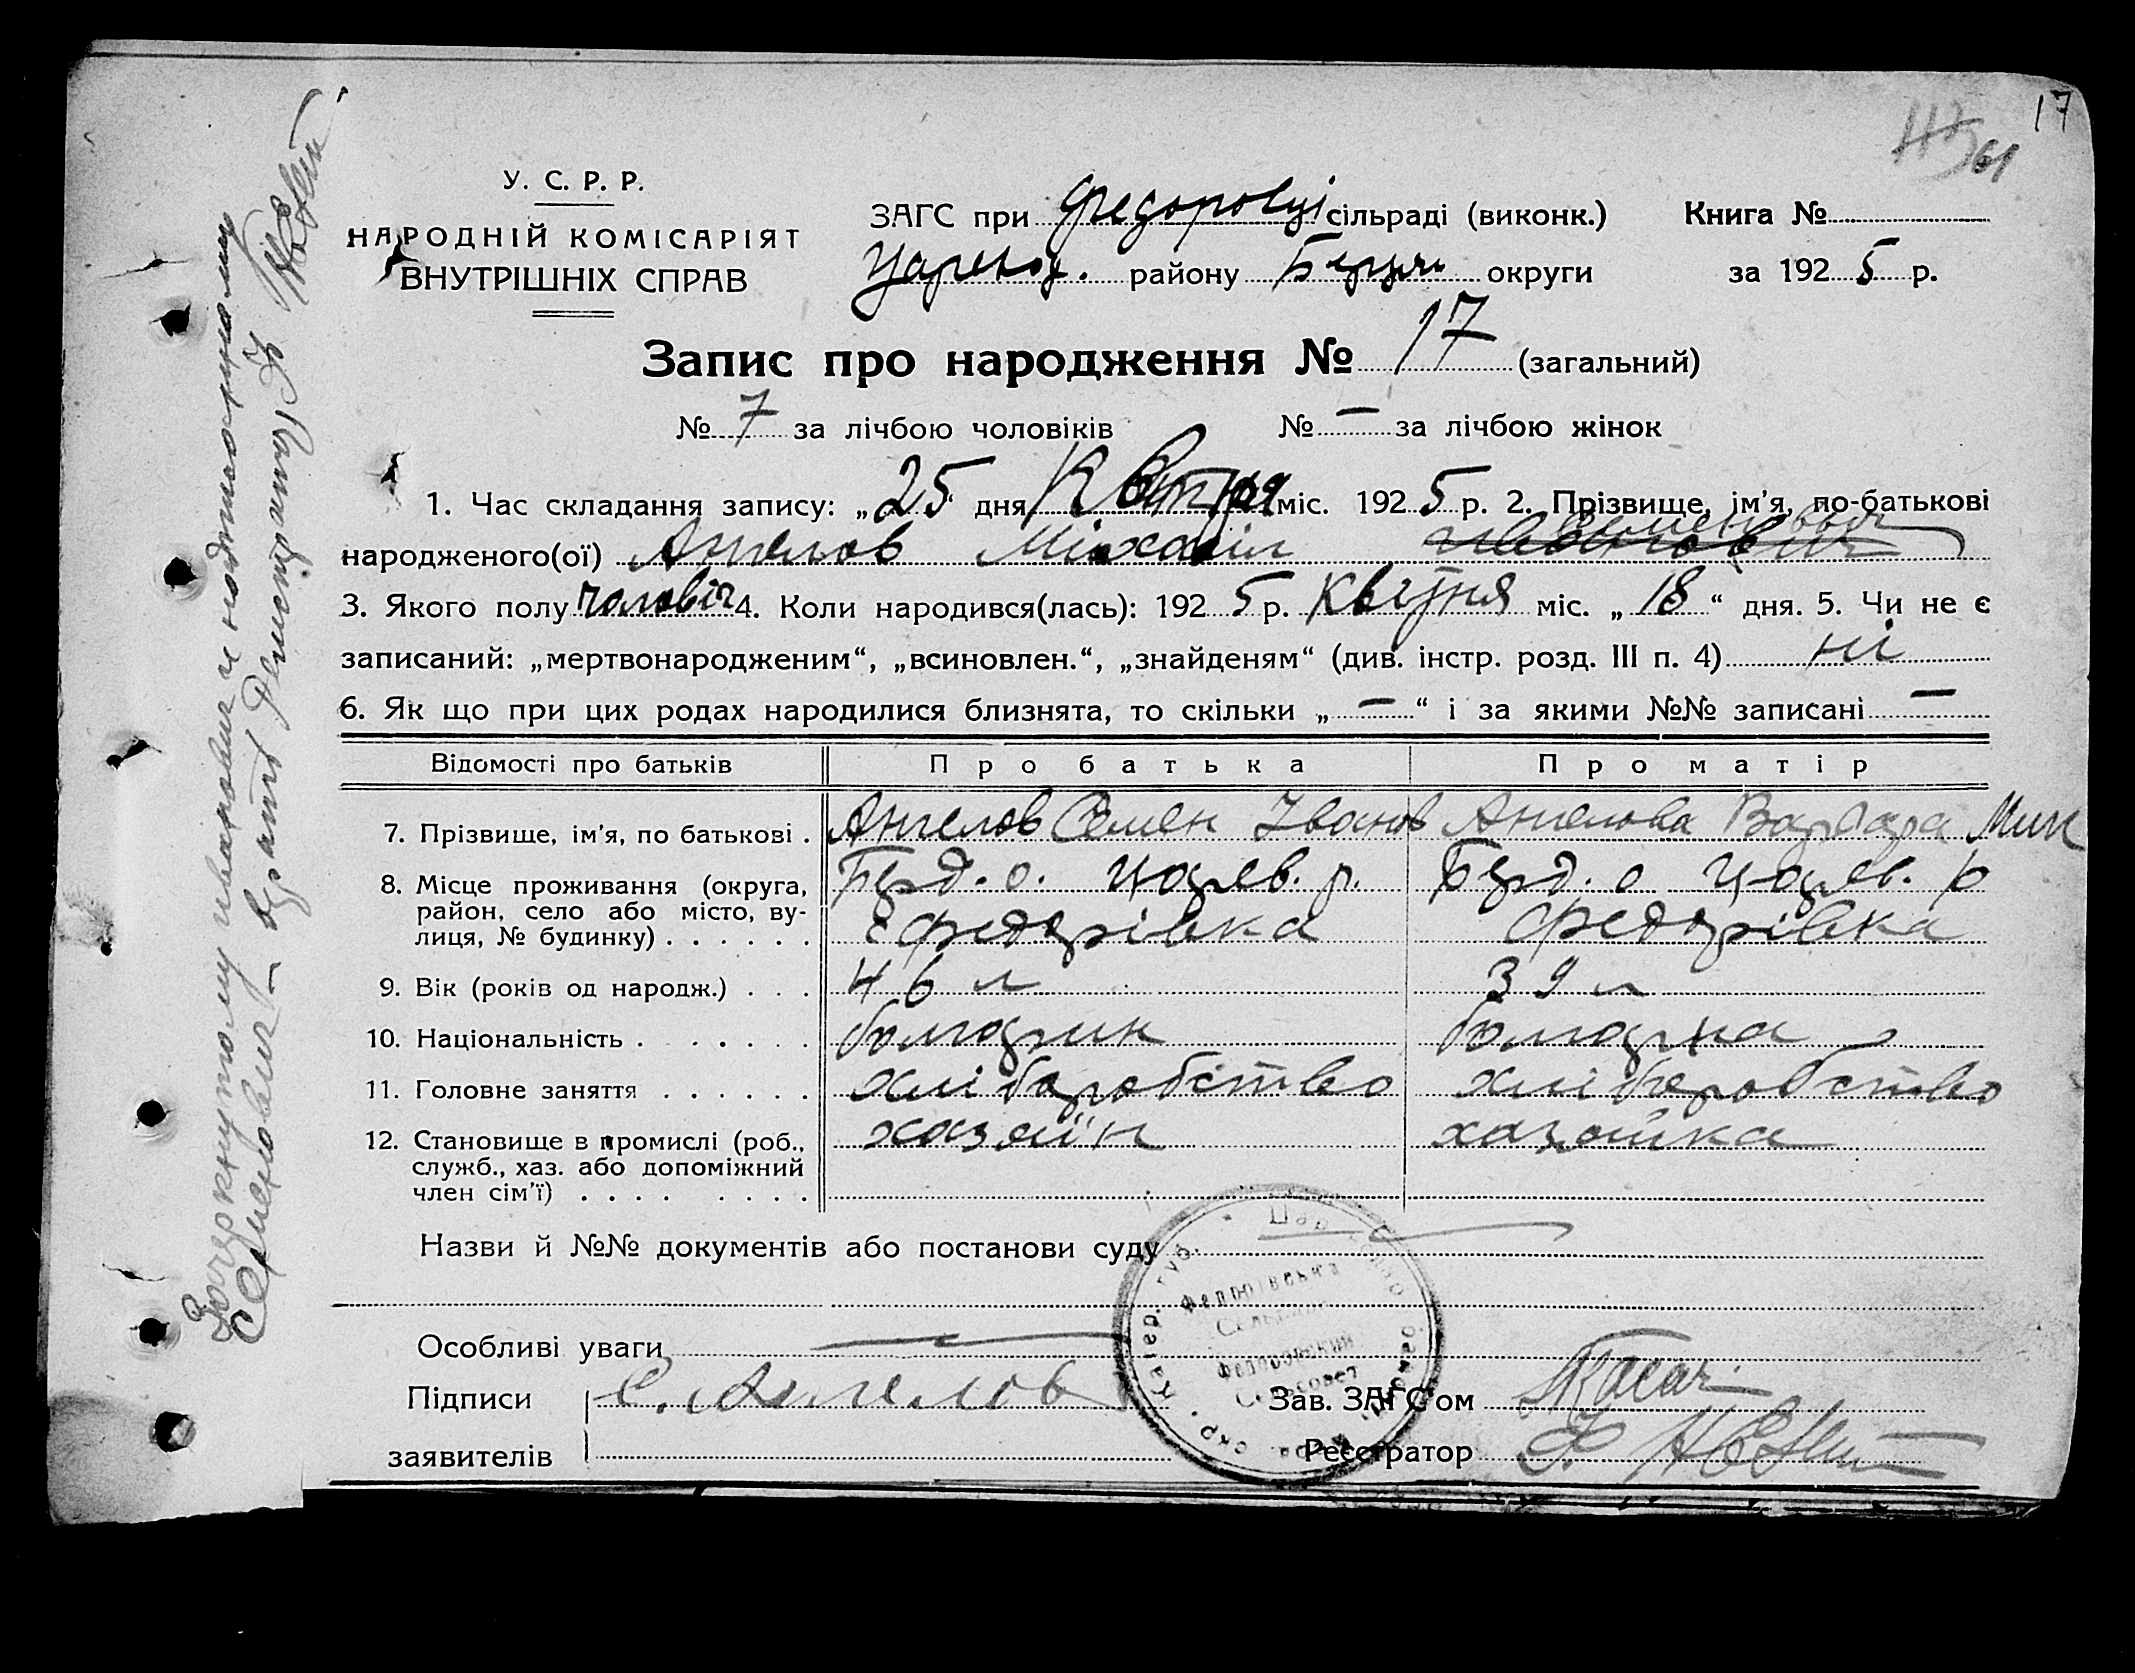 17
61
У. С. Р. Р.
НАРОДНІЙ КОМІСАРІЯТ
ВНУТРІШНІХ СПРАВ
ЗАГС при Федоровці сільраді (виконк.) Книга №
району округи за 1925 р.
Запис про народження № 17 (загальний)
№ 7 за лічбою чоловіків № — за лічбою жінок
1. Час складання запису: „25 дня Квітня міс. 1925 р. 2. Прізвище, ім'я, по-батькові
народженого(ої) Ангелов Міхаіл Семенович
3. Якого полу чоловіч 4. Коли народився(лась): 1925 р. Квітня міс. „18“ дня. 5. Чи не є
записаний: „мертвонародженим“, „всиновлен.“, „знайденям“ (див. інстр. розд. III п. 4) ні
6. Як що при цих родах народилися близнята, то скільки „—“ і за якими №№ записані —
Відомості про батьків Про батька Про матір
7. Прізвище, ім'я, по батькові . Ангелов Семен Іванов Ангелова Варвара Мик
8. Місце проживання (округа, Берд. о. Царев. р. Берд. о Царев. р
район, село або місто, ву- с Федорівка Федорівка
лиця, № будинку) . . . . . .
9. Вік (років од народж.) . . . 46 л 39 л
10. Національність . . . . . . болгарин болгарка
11. Головне заняття . . . . . . хліборобство хліборобство
12. Становище в промислі (роб., хазяїн хазяйка
служб., хаз. або допоміжний
член сім'ї) . . . . . . . .
Назви й №№ документів або постанови суду
Особливі уваги
Підписи С. Ангелов Зав. ЗАГС'ом
заявителів Реєстратор
Зачеркнутому иванович и надписанному
Семенович – верить Регистратор
Федорівська
Сельсовет